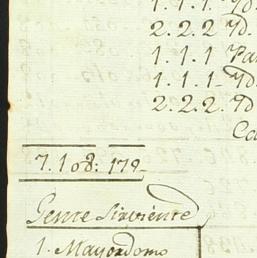 1. 1. 1. Yd.
2. 2. 2 Yd.
1. 1. 1
1. 1. 1. Yd.
2. 2. 2. Yd
7. 108: 179
Gente Sirviente
1. Mayordomo